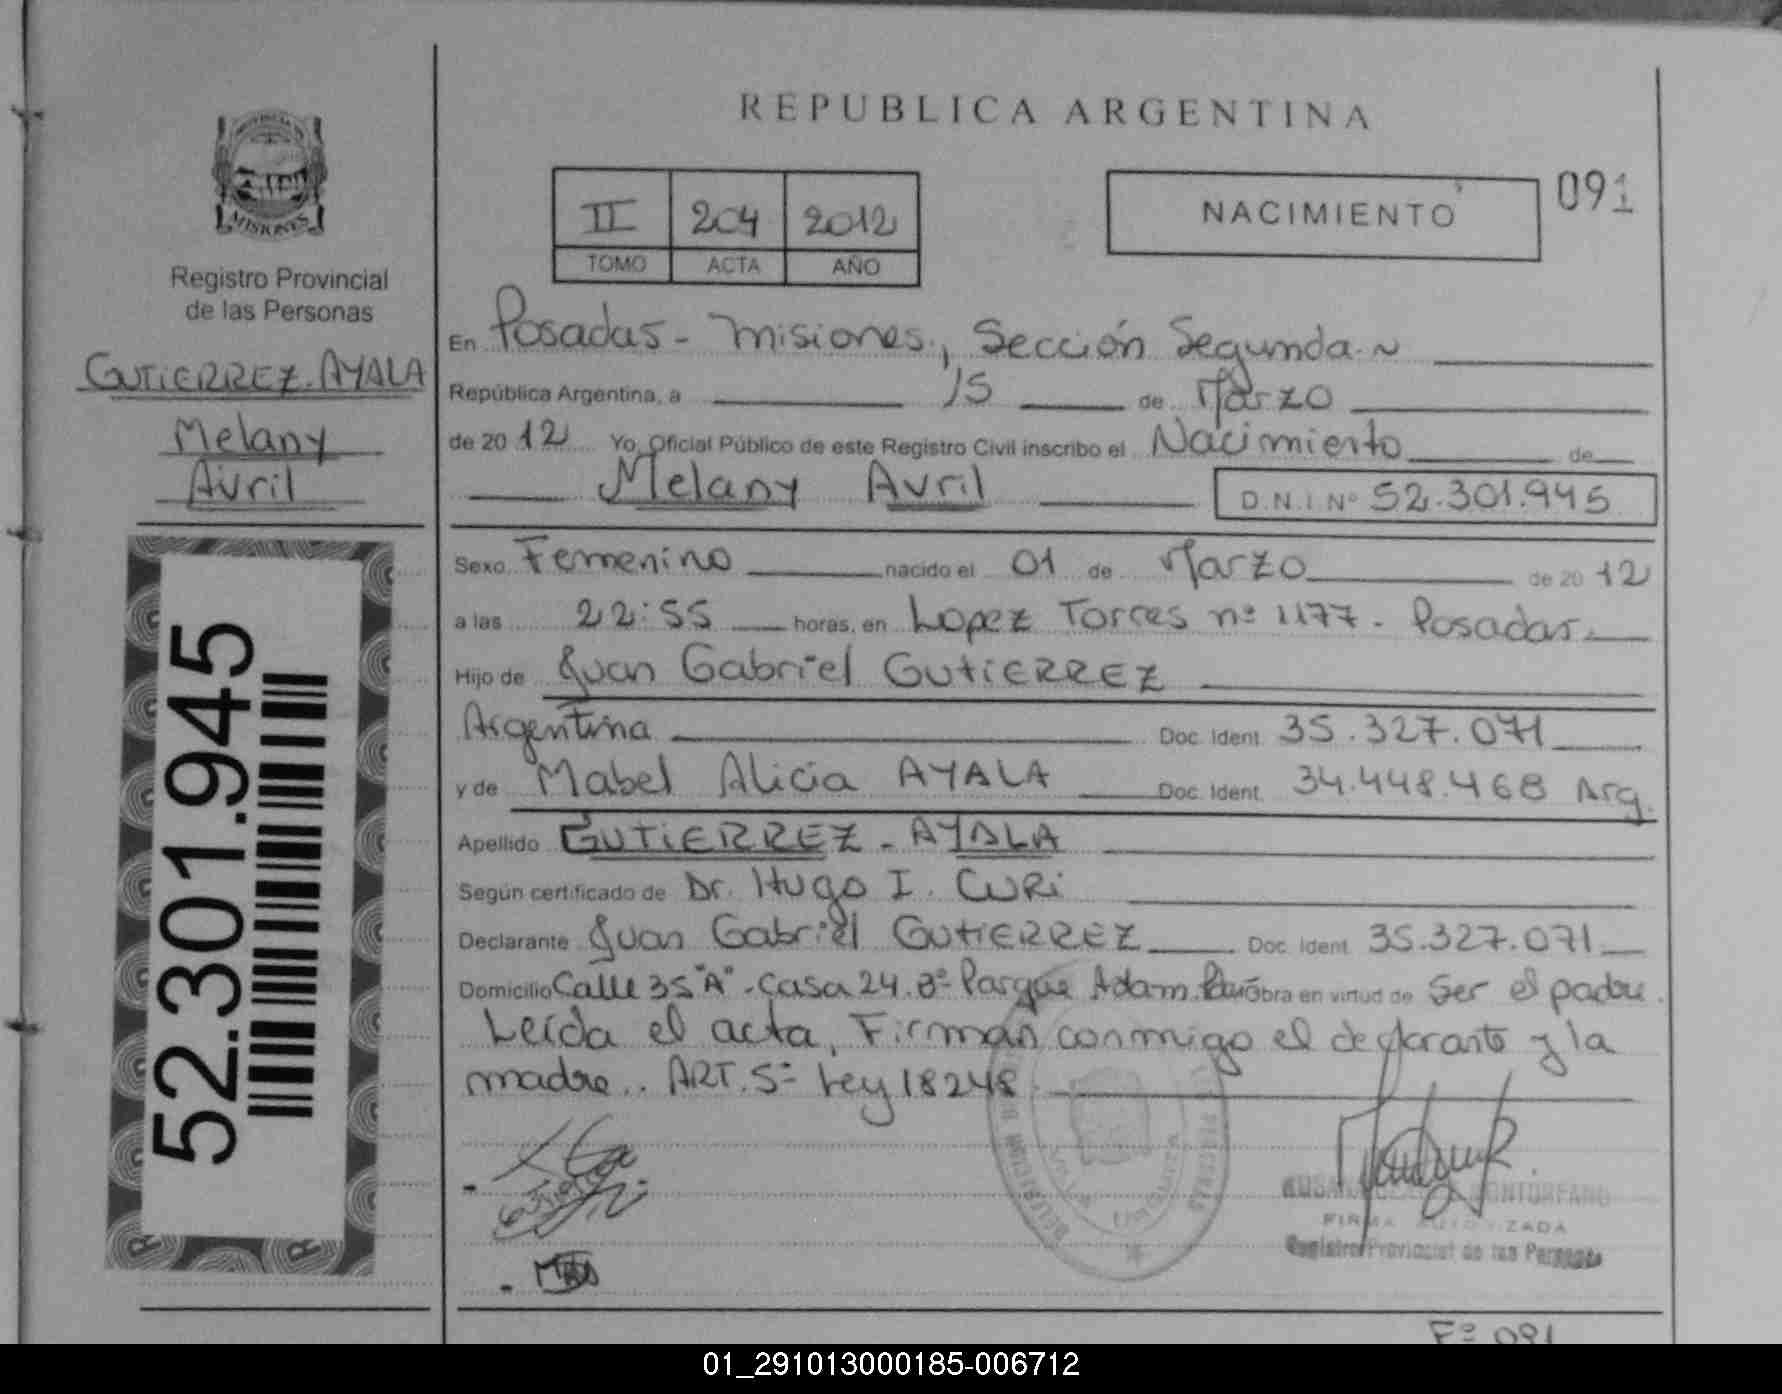 REPUBLICA ARGENTINA
MISIONES
Registro Provincial
de las Personas
GUTIERREZ-AYALA
Melany
Avril
52.301.945
II 204 2012
TOMO ACTA AÑO
NACIMIENTO
091
En Posadas - Misiones, Sección Segunda.~
República Argentina, a 15 de Marzo
de 2012 Yo, Oficial Público de este Registro Civil inscribo el Nacimiento de
Melany Avril D.N.I Nº 52.301.945
Sexo Femenino nacido el 01 de Marzo de 2012
a las 22:55 horas, en Lopez Torres nº 1177 - Posadas.
Hijo de Juan Gabriel GUTIERREZ
Argentina Doc. Ident. 35.327.071
y de Mabel Alicia AYALA Doc. Ident. 34.448.468 Arg.
Apellido GUTIERREZ - AYALA
Según certificado de Dr. Hugo I. CURI
Declarante Juan Gabriel GUTIERREZ Doc. Ident. 35.327.071
Domicilio Calle 35 "A" - Casa 24. Bº Parque Adam. Obra en virtud de Ser el padre.
Leída el acta, Firman conmigo el declarante y la
madre.. ART. 5º Ley 18248
FIRMA AUTORIZADA
Registro Provincial de las Personas
Fº 091
01_291013000185-006712